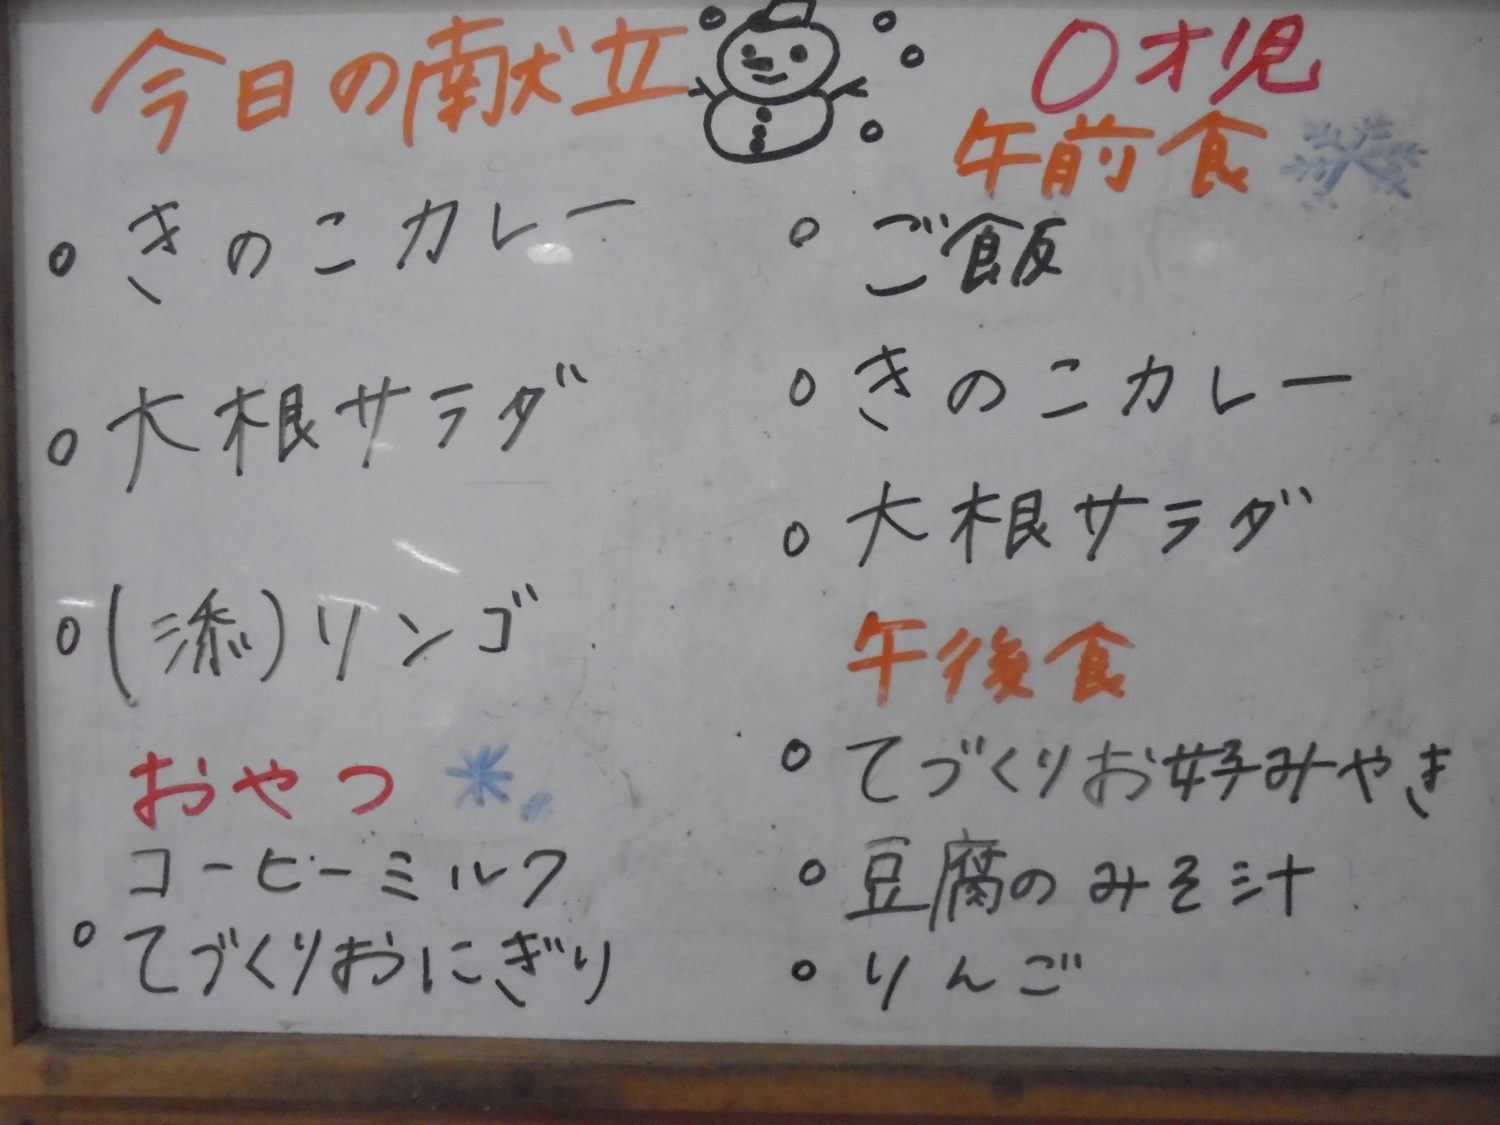 今日の献立
○ きのこカレー
○ 大根サラダ
○ (添)リンゴ
おやつ
コーヒーミルク
○ てづくりおにぎり
○才児
午前食
○ ご飯
○ きのこカレー
○ 大根サラダ
午後食
○ てづくりお好みやき
○ 豆腐のみそ汁
○ りんご